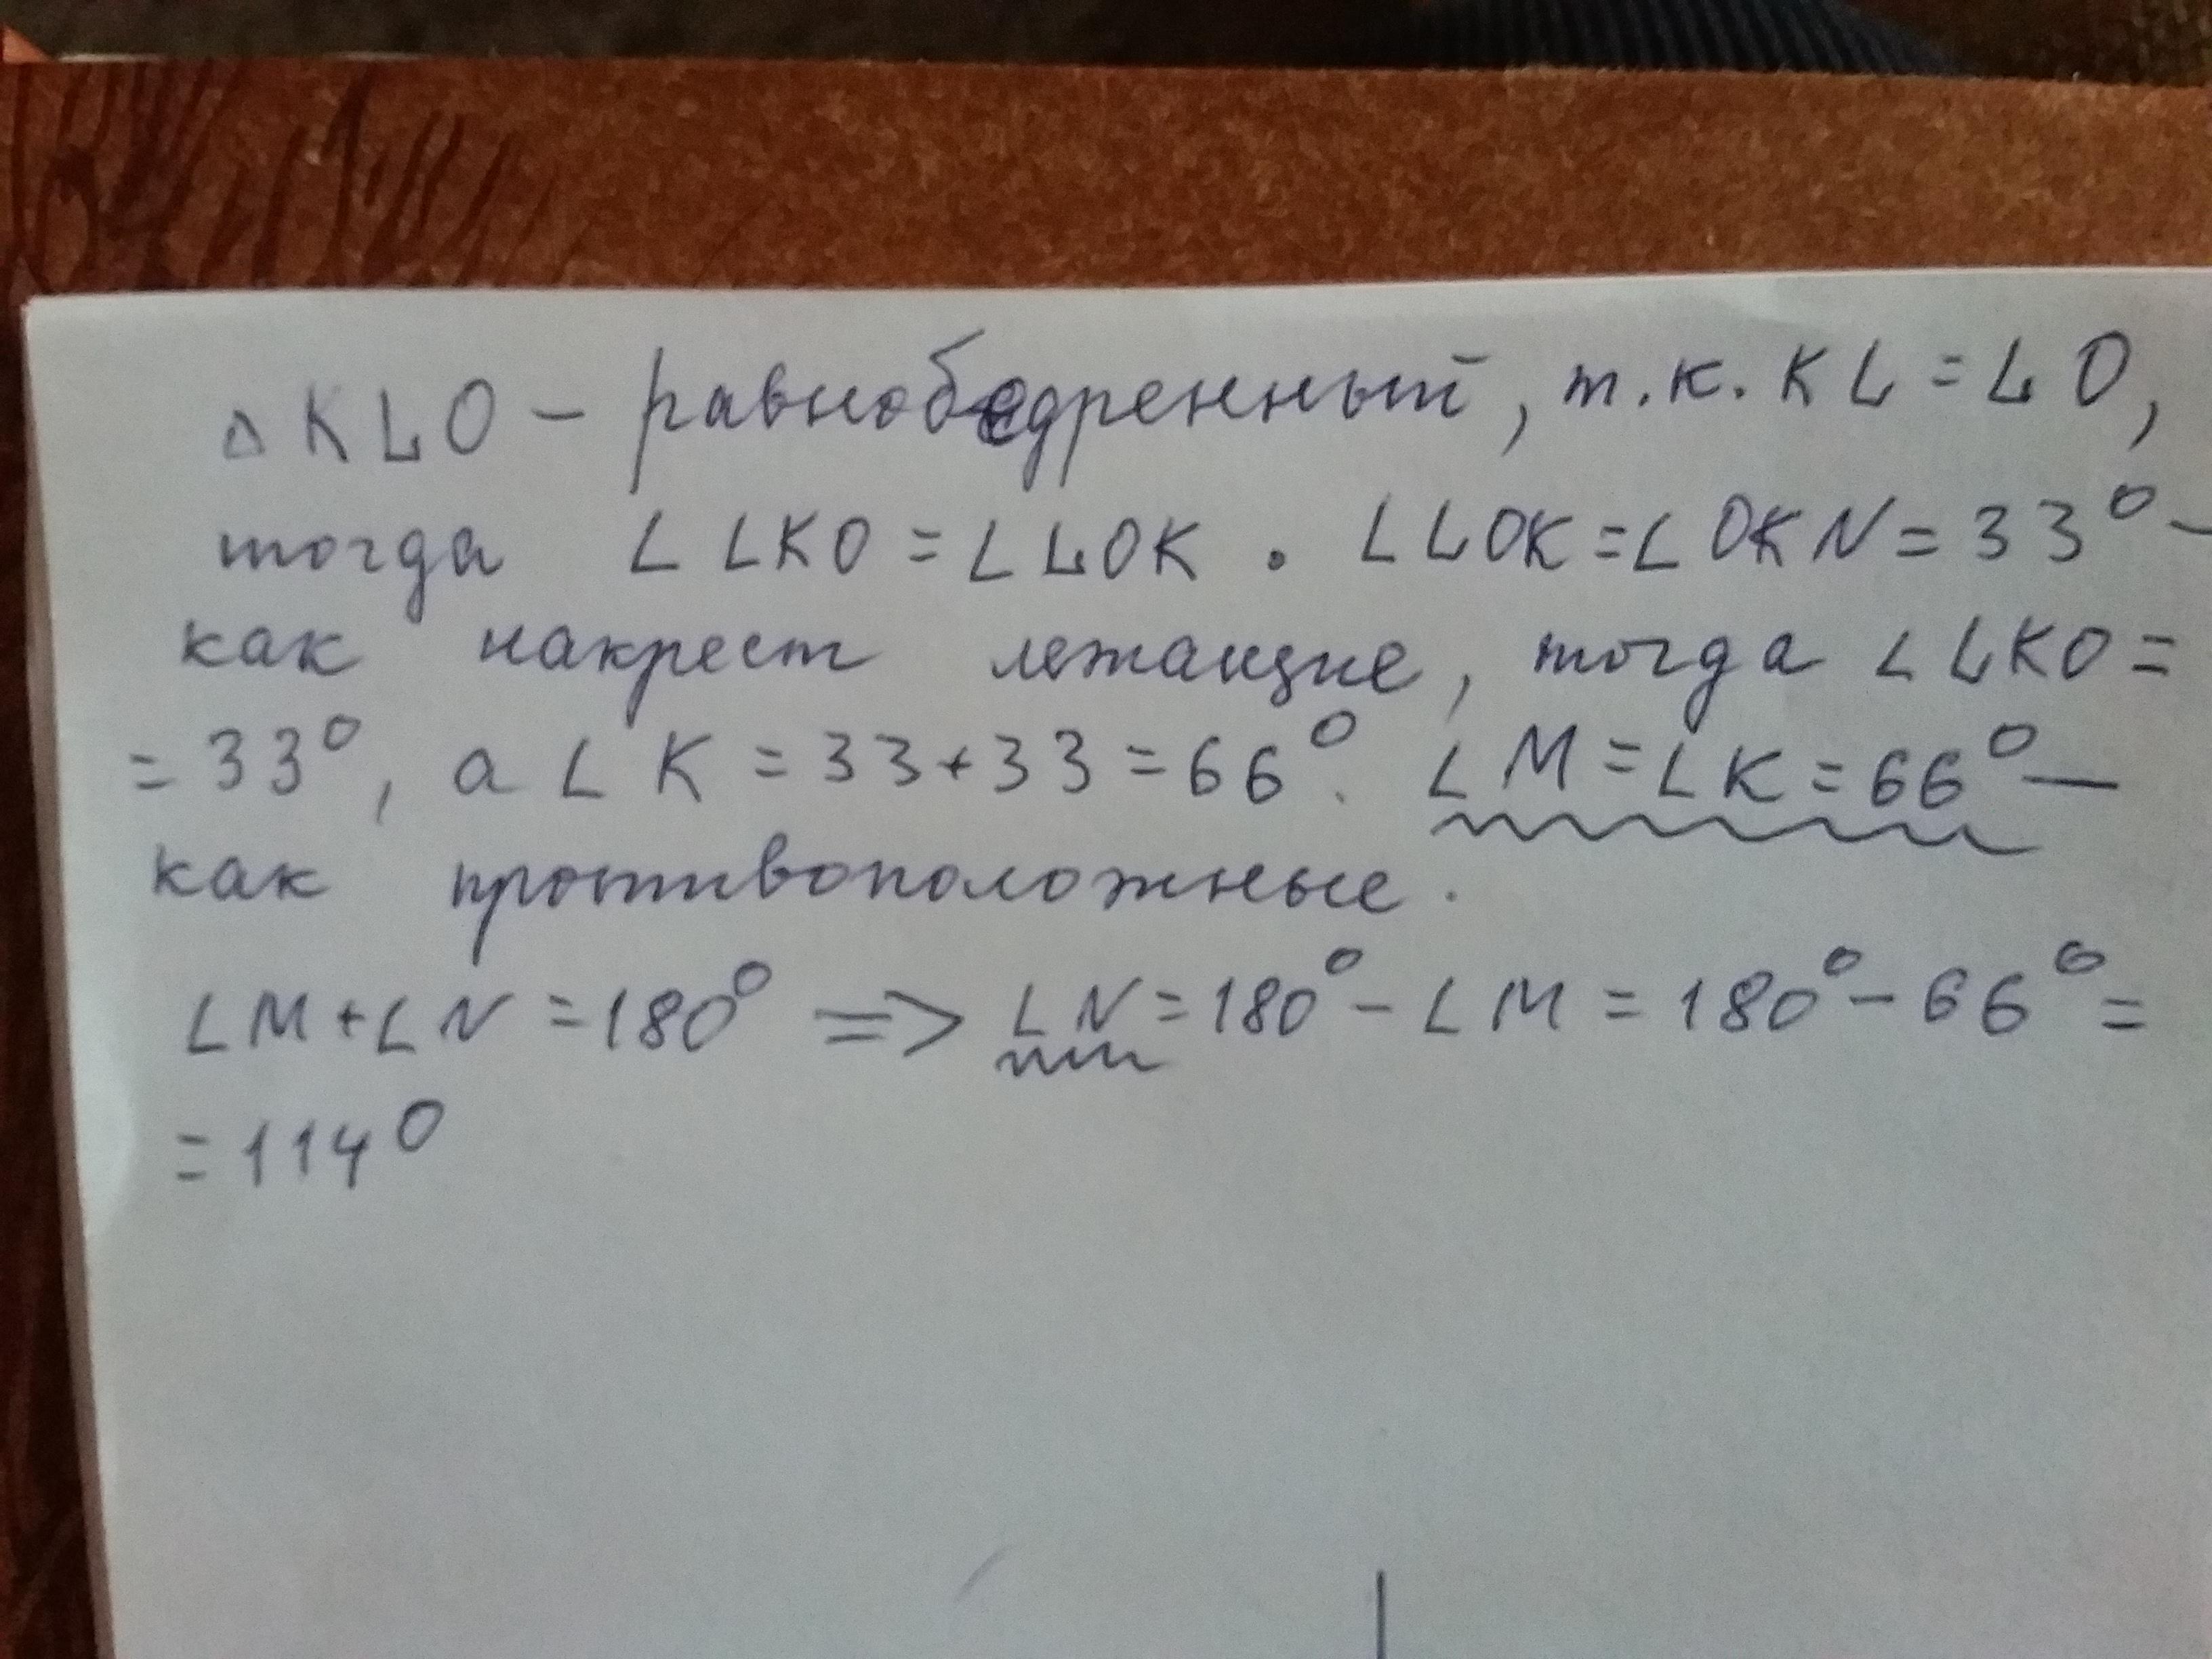 △KLO – равнобедренный, т.к. KL = LO,
тогда ∠LKO = ∠LOK. ∠LOK = ∠OKN = 33° –
как накрест лежащие, тогда ∠LKO =
= 33°, а ∠K = 33+33 = 66°. ∠M = ∠K = 66° —
как противоположные.
∠M + ∠N = 180° => ∠N = 180° – ∠M = 180° – 66° =
= 114°